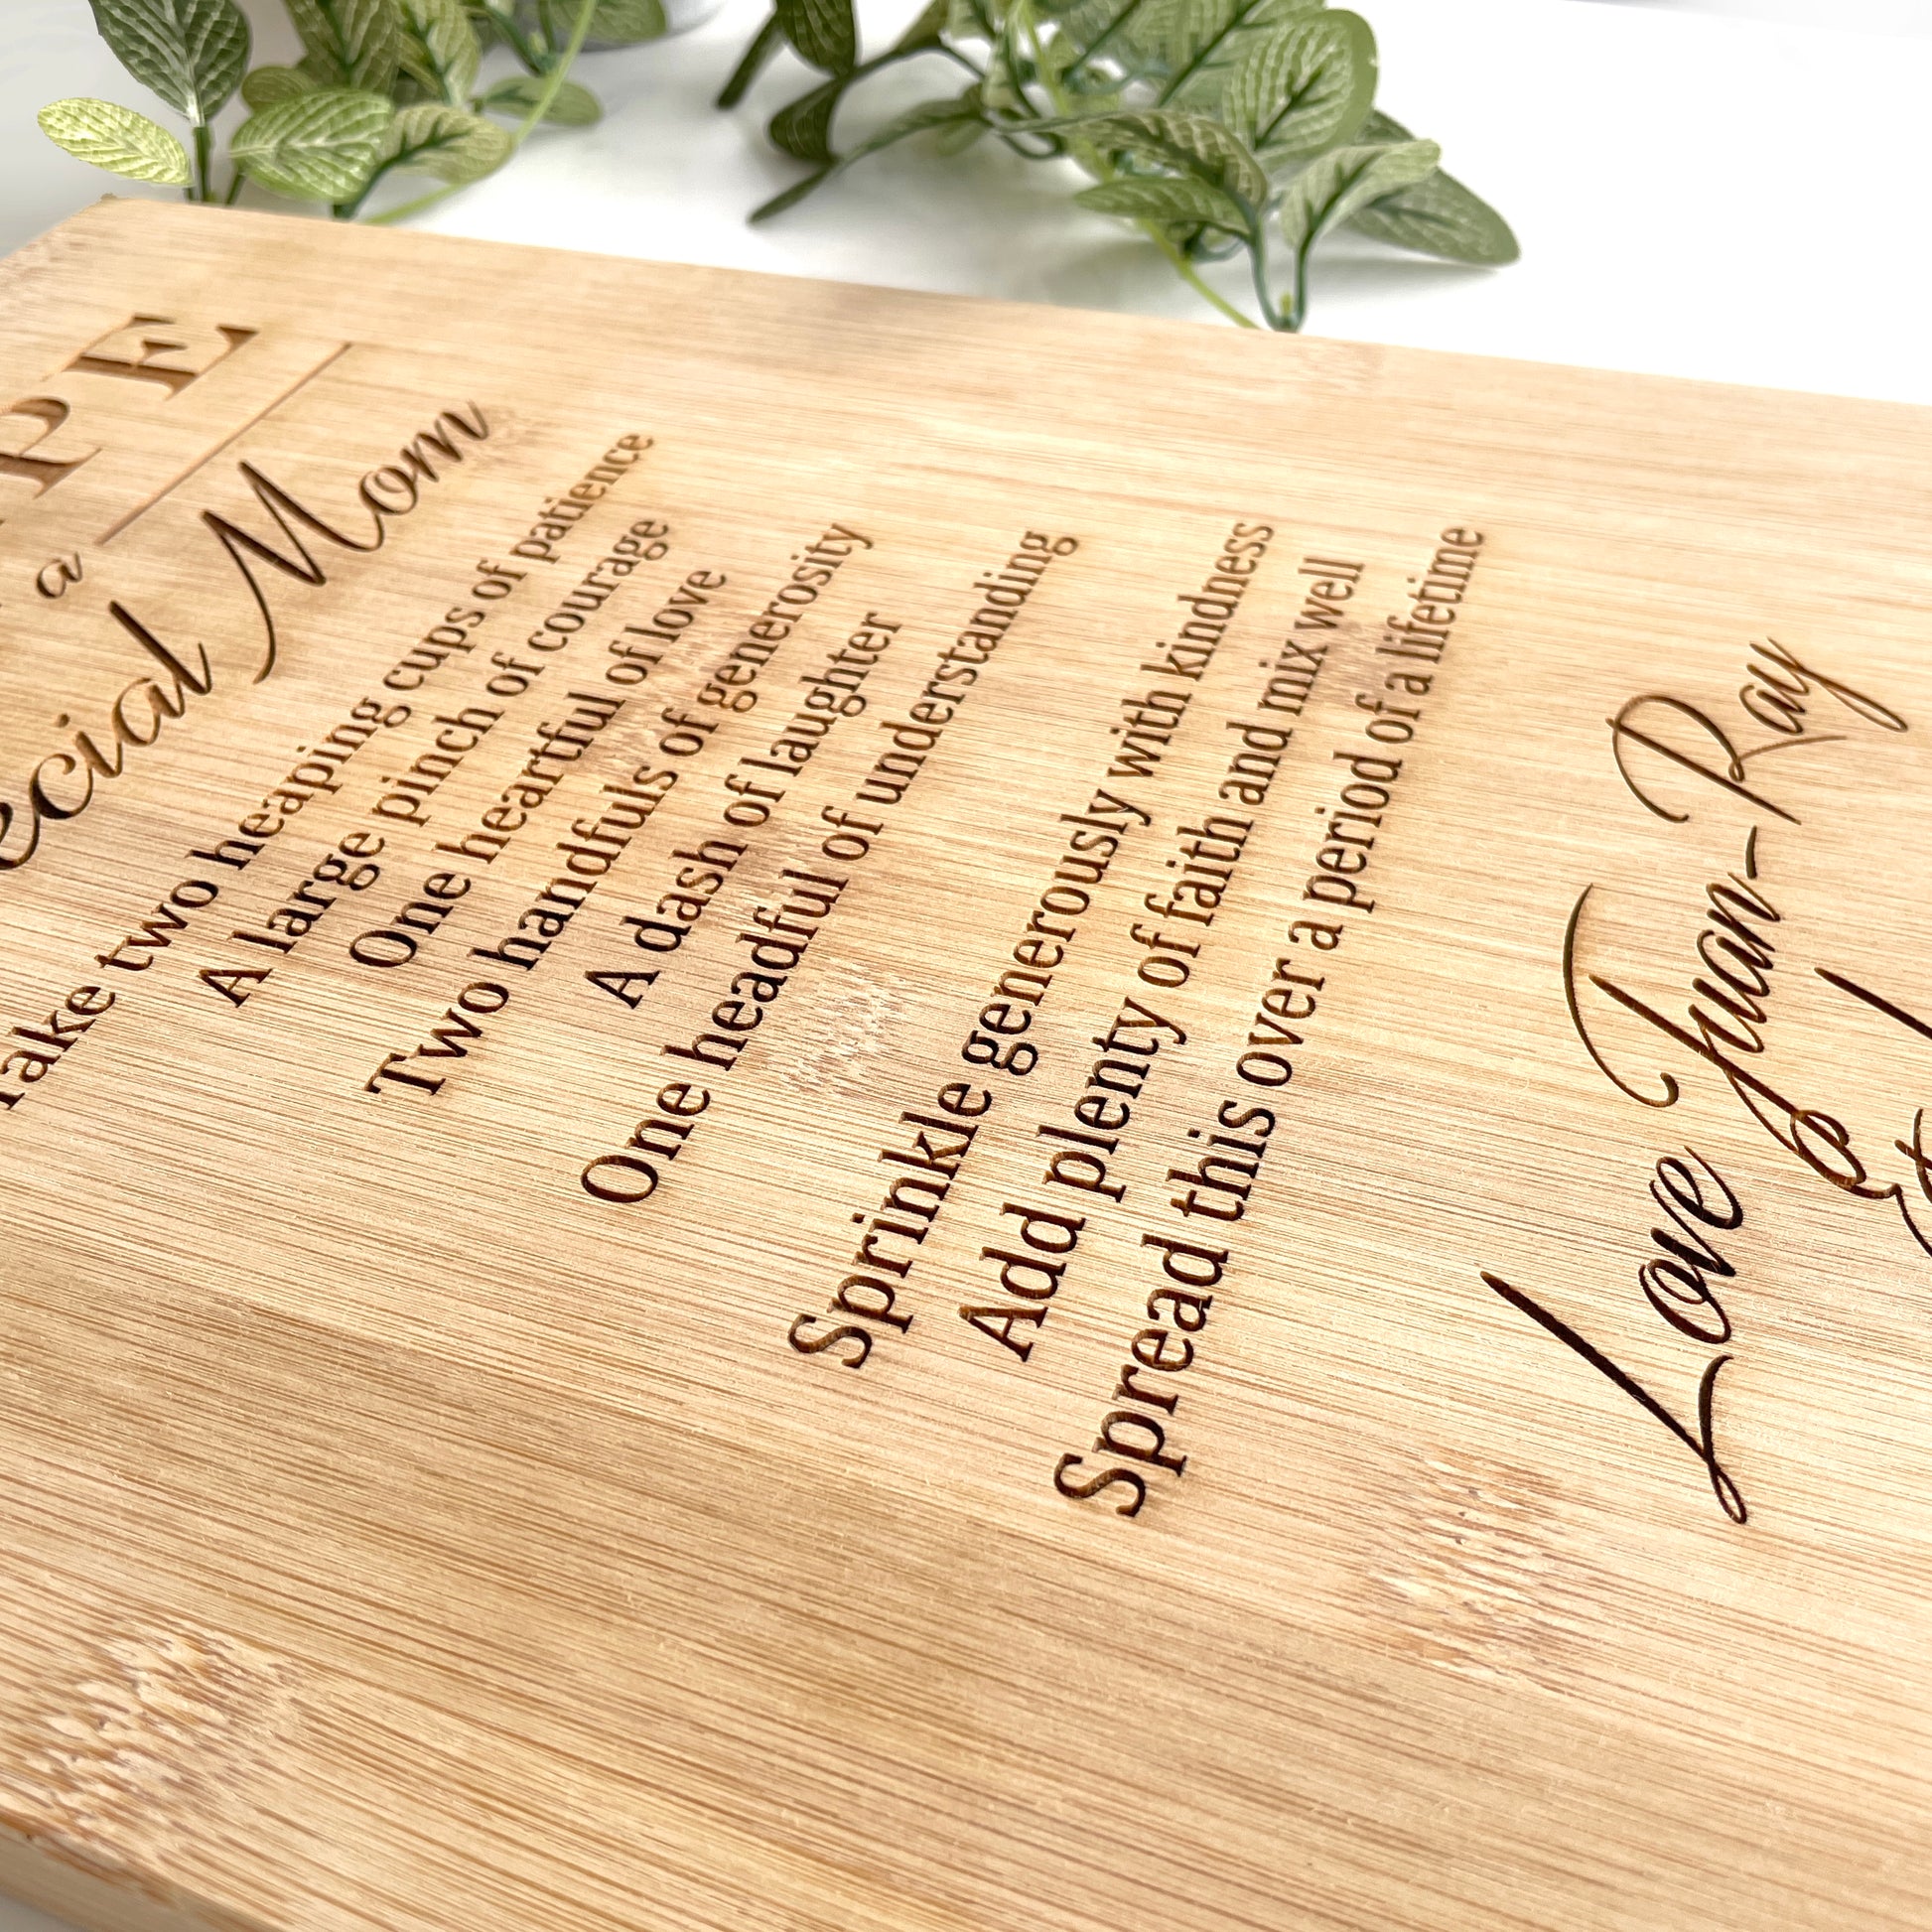 a
Mom
Take two heaping cups of patience
A large pinch of courage
One heartful of love
Two handfuls of generosity
A dash of laughter
One headful of understanding
Sprinkle generously with kindness
Add plenty of faith and mix well
Spread this over a period of a lifetime
Love Juan-Ray
&